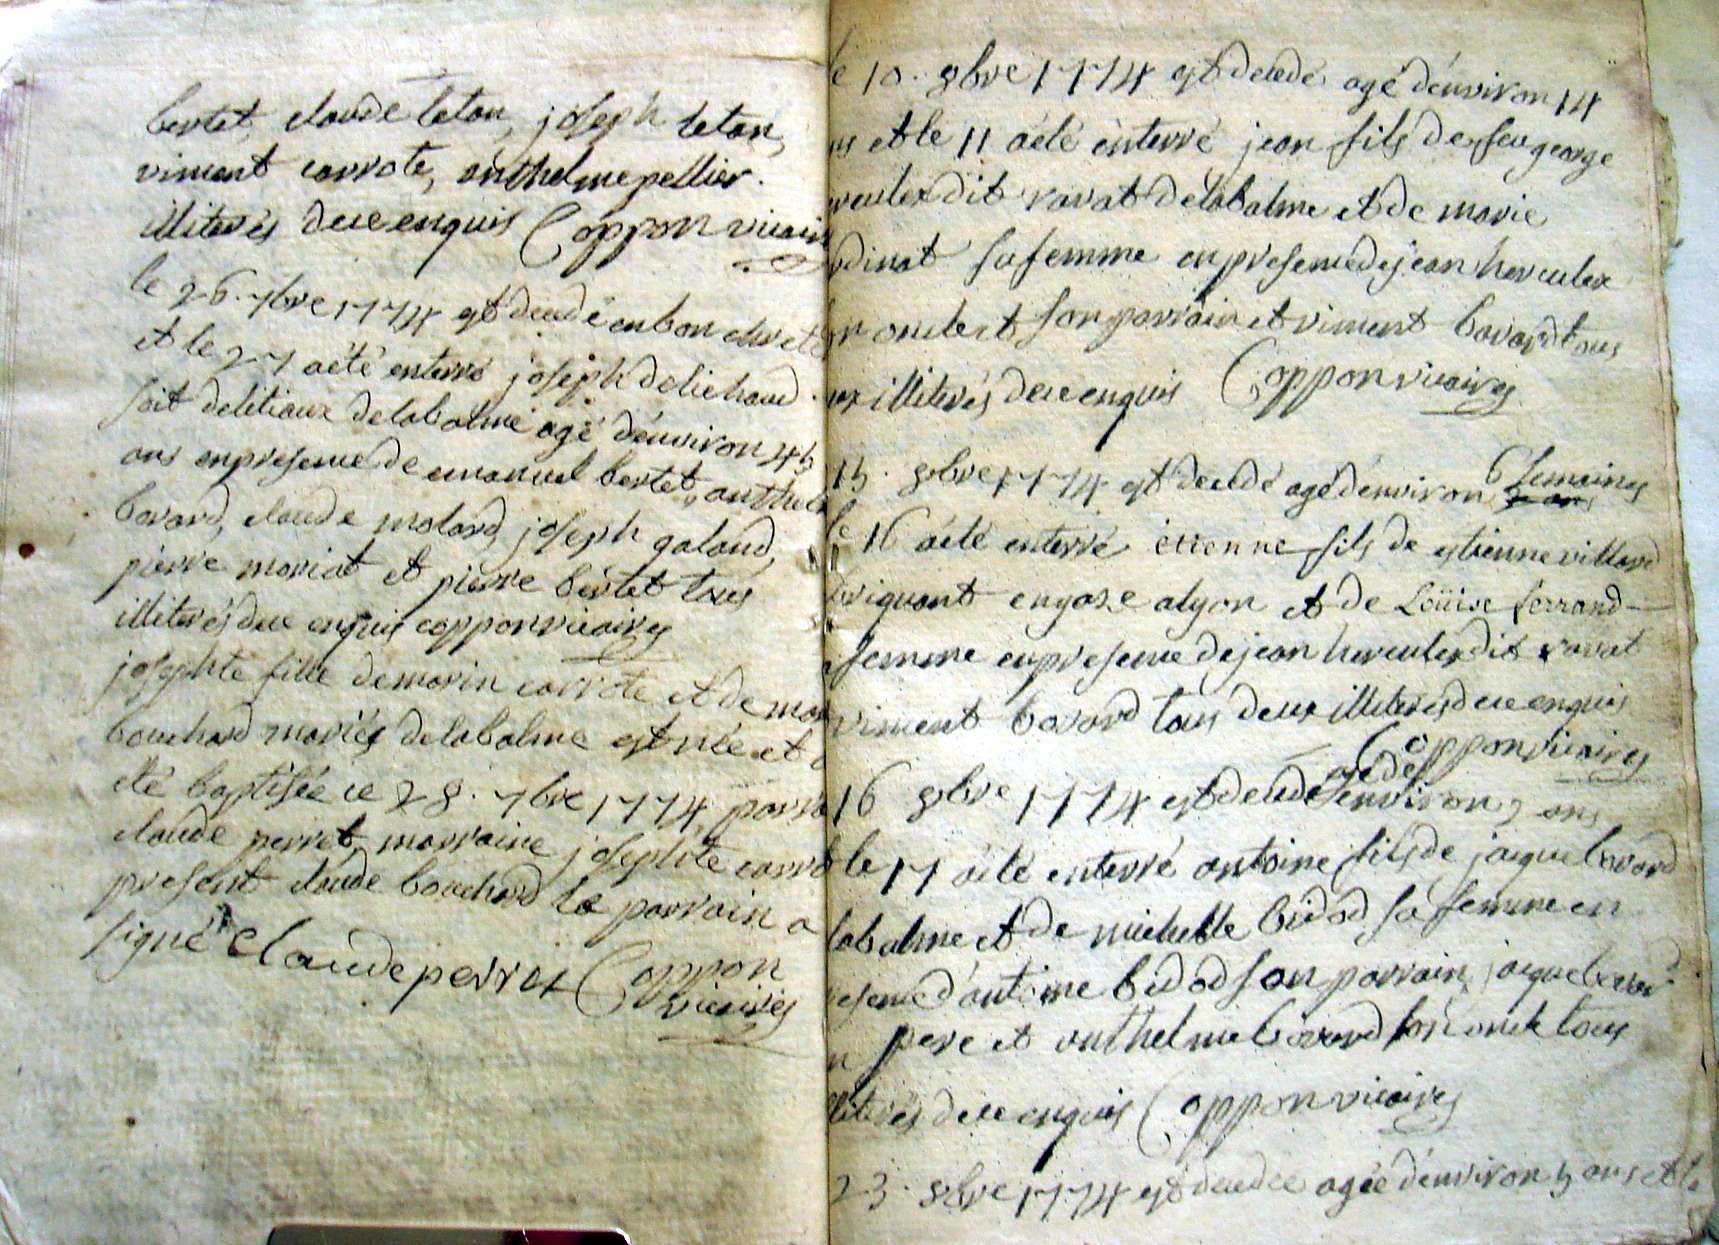 bertet, claude letan, joseph letan,
viment carrote, anthelme pellier.
illiterés de ce enquis Coppon vicair
le 26. 7bre 1774 est decedé en bon chret
et le 27 a été enterré joseph delichaud
soit deletiaux de la balme agé d'environ 45
ans en presence de emanuel bertet, anthel
bavard, claude molard, joseph galaud,
pierre moriat et pierre bertet tous
illiterés de ce enquis coppon vicaires
josephte fille de marin carrote et de mar
bouchard mariés de la balme est née et
été baptisée ce 28. 7bre 1774, parra
claude perret, marraine josephte carrot
present claude bouchard le parrain a
signé Claude perret Coppon
vicaires
le 10. 8bre 1774 est decedé agé d'environ 14
ns et le 11 a été enterré jean fils de feu george
erculex dit ravat de la balme et de marie
rdinat sa femme en presence de jean herculex
on oncle et son parrain et viment bavard tous
ux illiterés de ce enquis Coppon vicaires
15. 8bre 1774 est decedé agé d'environ 6 semaines
le 16 a été enterré étienne fils de estienne villard
briquant en gaze a lyon et de Loüise ferrand
femme en presence de jean herculex dit ravat
viment bavard tous deux illiterés de ce enquis
Coppon vicaires
16 8bre 1774 est decedé agé d'environ ans
le 17 a été enterré antoine fils de jaque bavard
labalme et de michelle bidod sa femme en
resence d'antoine bidod son parrain, jaque bavard
n pere et anthelme bavard son oncle tous
lliterés de ce enquis Coppon vicaires
23. 8bre 1774 est decedée agée d'environ 5 ans et le